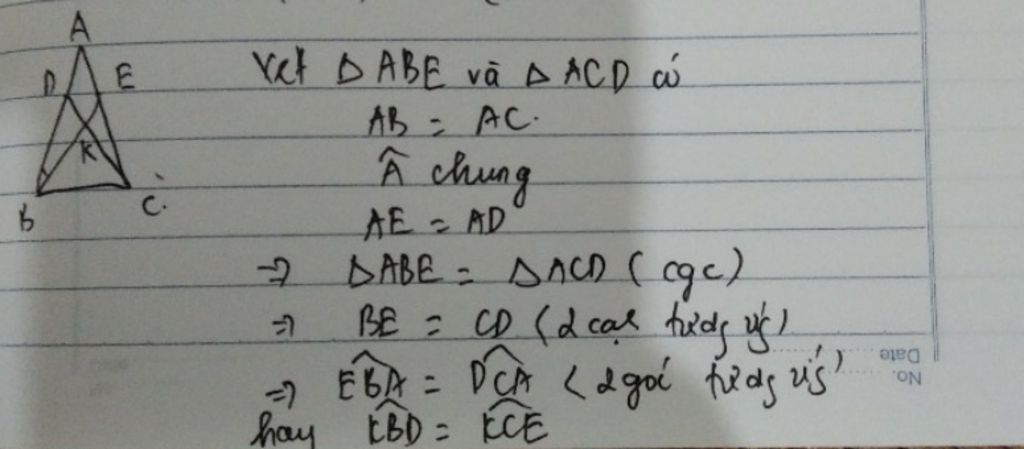 A
D E
K
B C.
Xét △ABE và △ACD có
AB = AC.
Â chung
AE = AD
=> △ABE = △ACD (cgc)
=> BE = CD (2 cạh tươg ứg)
=> EBA = DCA (2 gói tươg ứg)
hay KBD = KCE
Date
No.